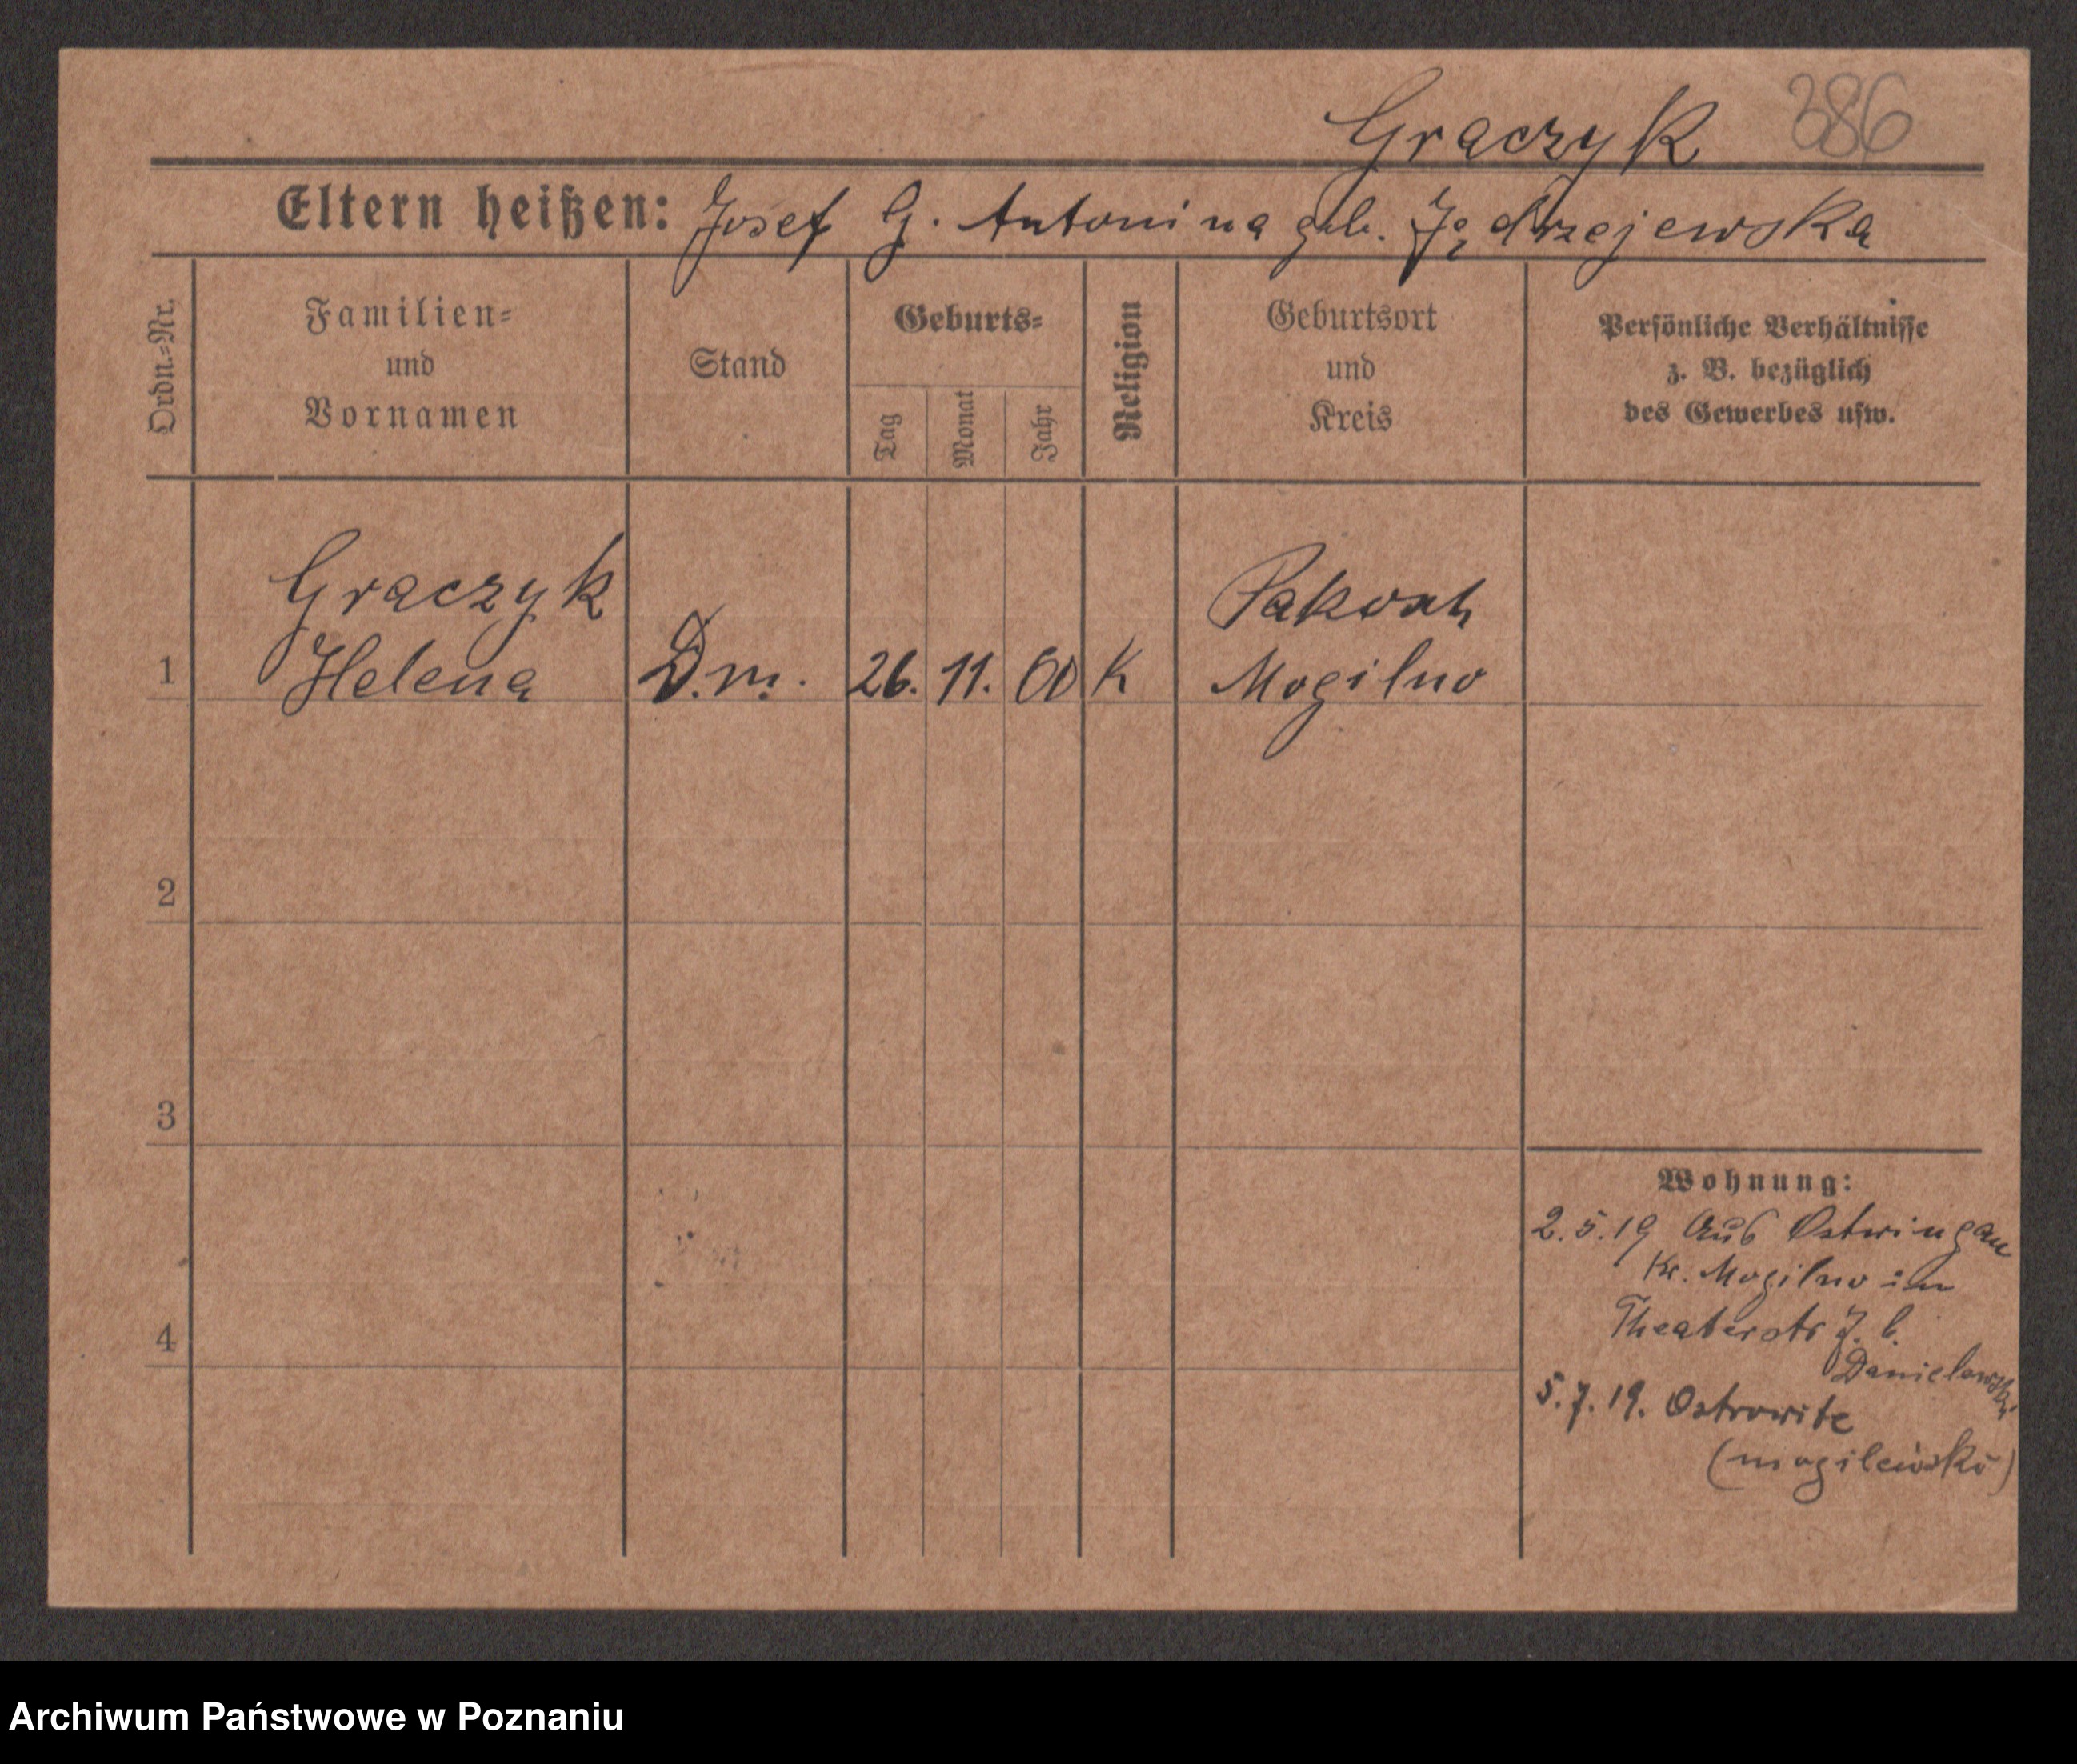 Graczyk 386
Eltern heißen: Josef G. Antonina geb. Jędrzejewska
Ordn.-Nr.
Familien-
und
Vornamen
Stand
Geburts-
Tag
Monat
Jahr
Religion
Geburtsort
und
Kreis
Persönliche Verhältnisse
z. B. bezüglich
des Gewerbes usw.
Graczyk
Pakosch
1 Helena D.m. 26. 11. 00 K Mogilno
2
3
4
Wohnung:
2.5.19 Aus Ostwingen
Kr. Mogilno in
Theaterstr 7. b.
Danielewski
5.7.19. Ostrowite
(mogileński)
Archiwum Państwowe w Poznaniu